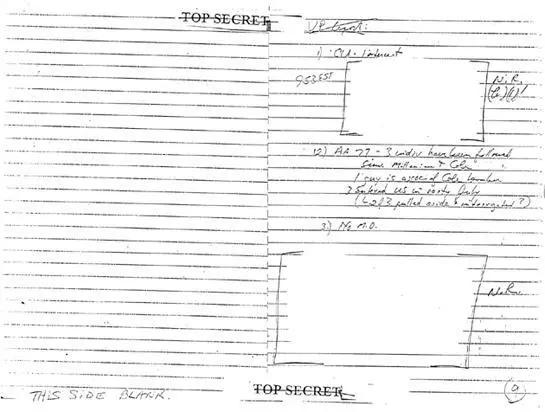 TOP SECRET
1) CU. Intercept
953 EST
N.R.
(b)(1)
2) AA 77 - 3 indiv have been followed
since Millenium + Cole
1 guy is assoc of Cole bomber
3 entered US in early July
(2 of 3 pulled aside & interrogated?)
3)
N.R.
THIS SIDE BLANK.
TOP SECRET
9